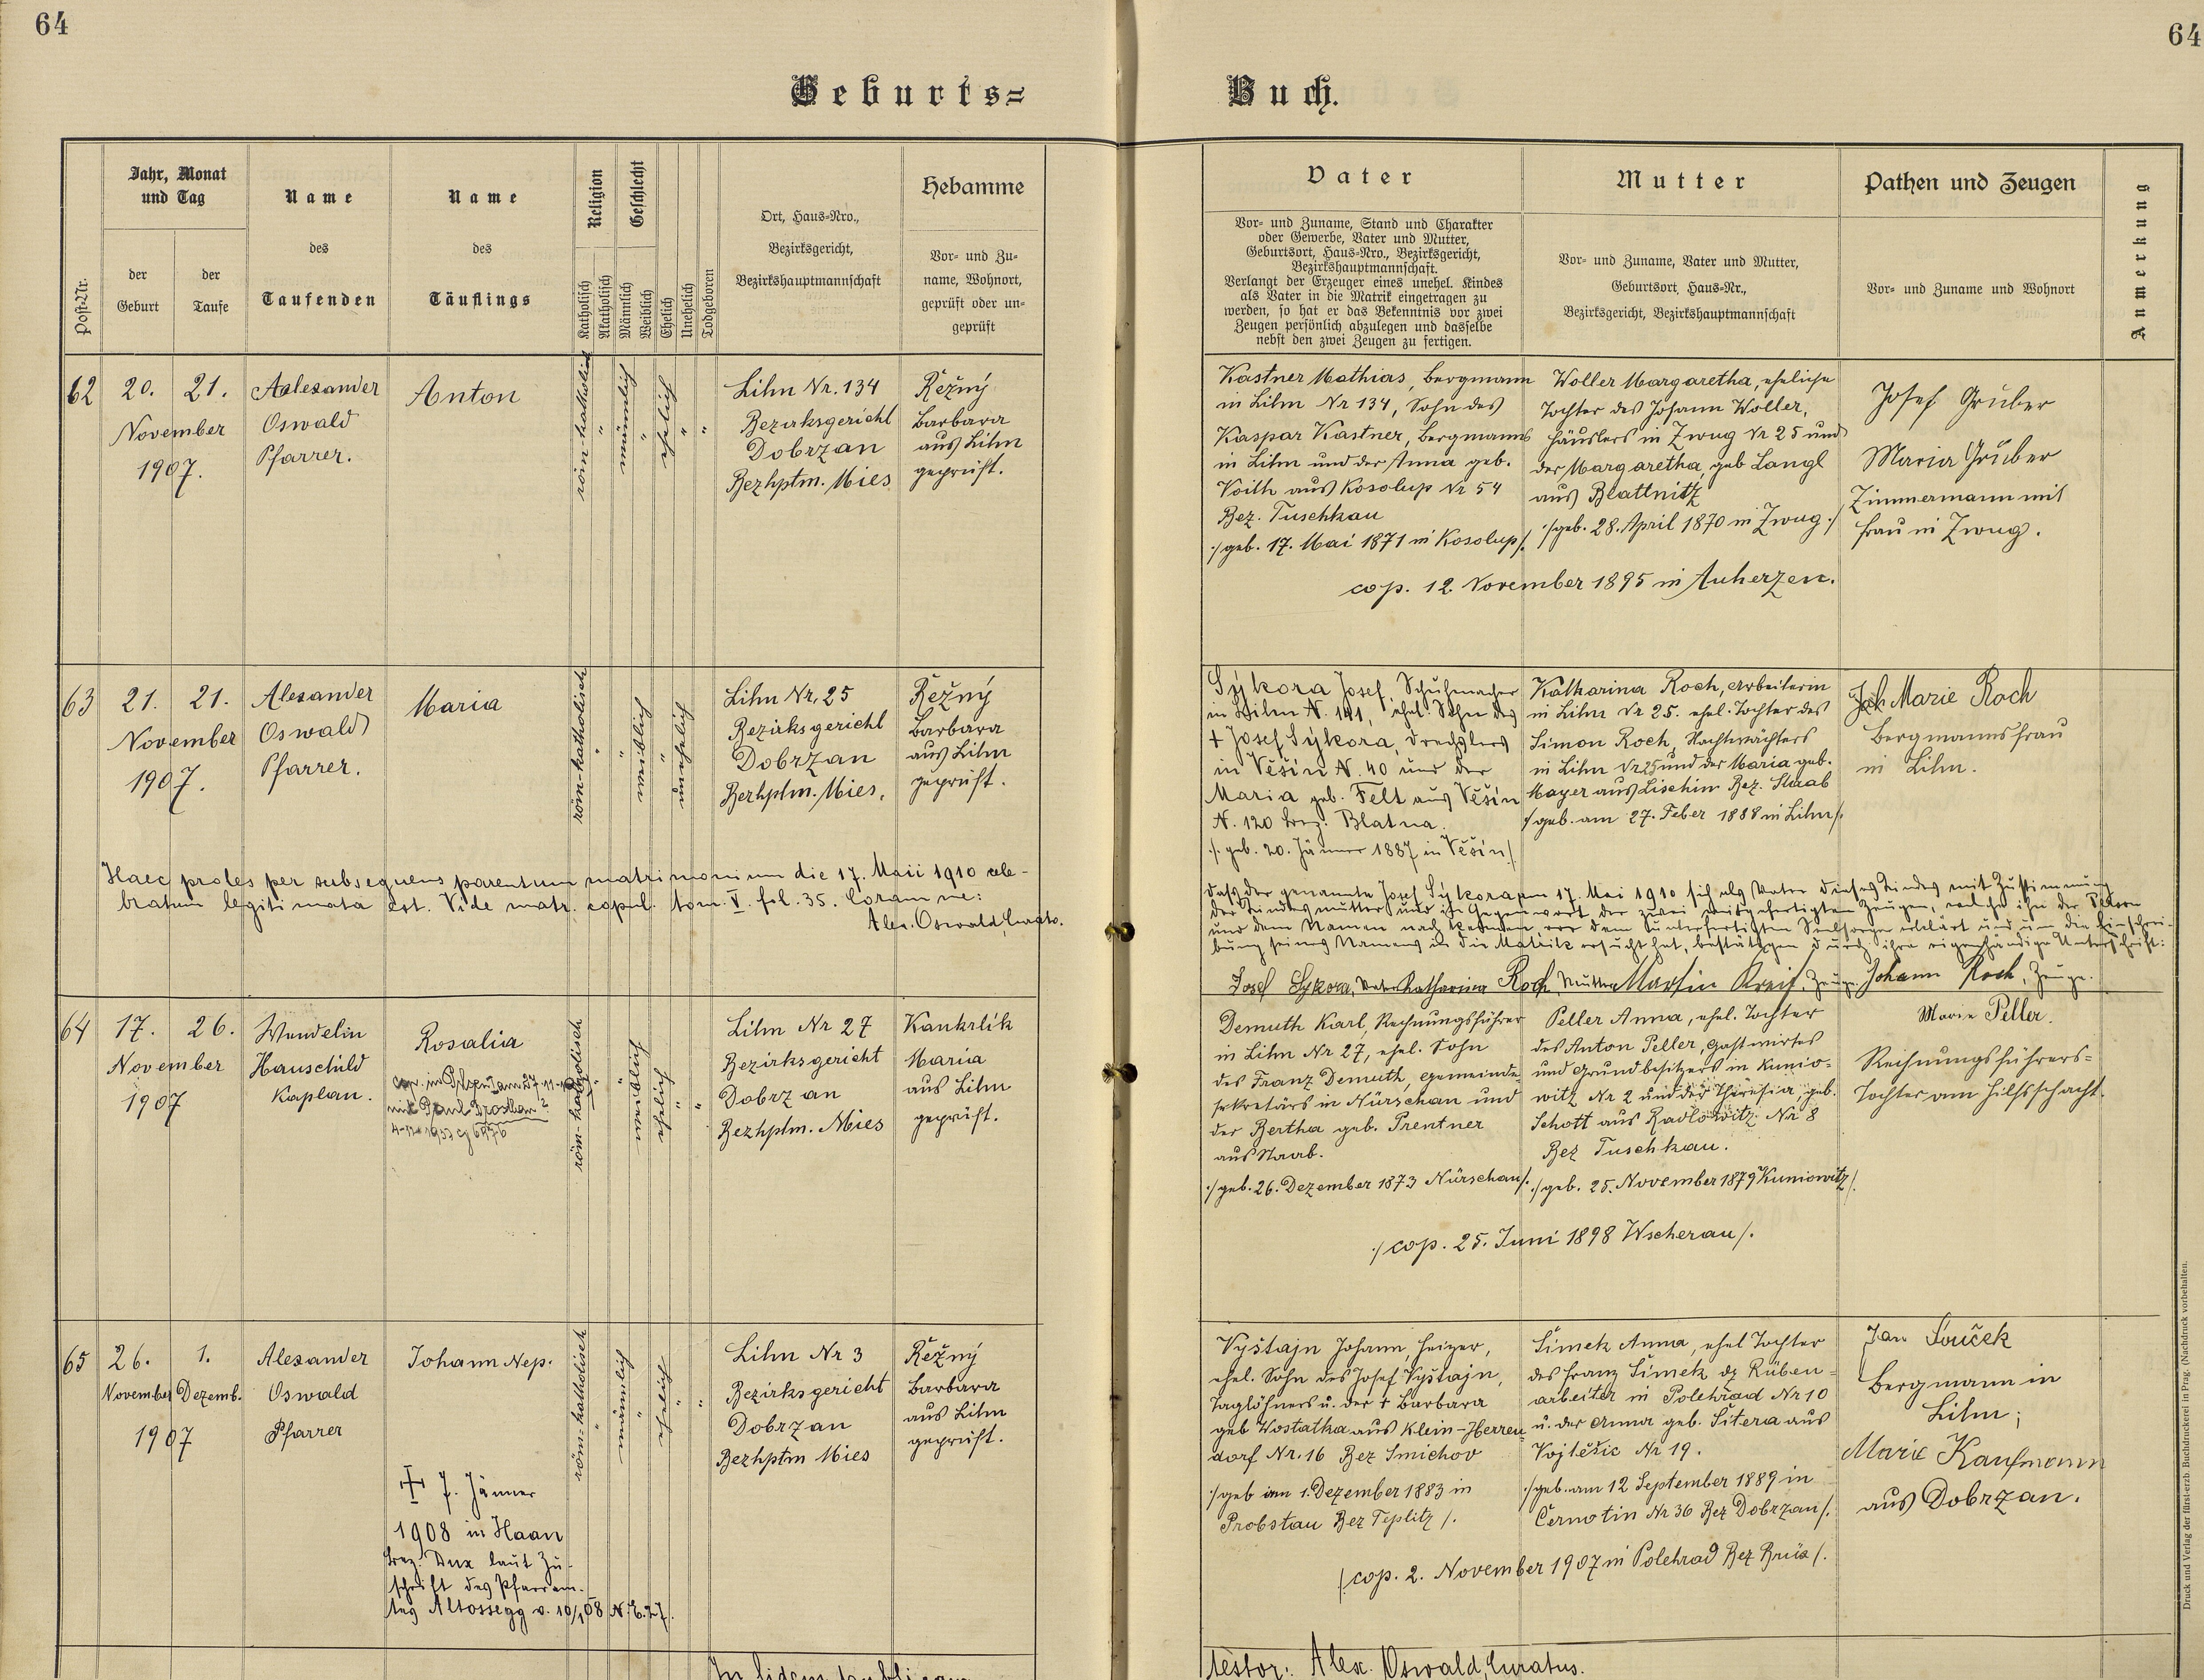 64
64
Geburts=
Buch.
Post-Nr.
Jahr, Monat
und Tag
der
Geburt
der
Taufe
Name
des
Taufenden
Name
des
Täuflings
Religion
Katholisch
Akatholisch
Geschlecht
Männlich
Weiblich
Ehelich
Unehelich
Todgeboren
Ort, Haus-Nro.,
Bezirksgericht,
Bezirkshauptmannschaft
Hebamme
Vor- und Zu-
name, Wohnort,
geprüft oder un-
geprüft
Vater
Vor- und Zuname, Stand und Charakter
oder Gewerbe, Vater und Mutter,
Geburtsort, Haus-Nro., Bezirksgericht,
Bezirkshauptmannschaft.
Verlangt der Erzeuger eines unehel. Kindes
als Vater in die Matrik eingetragen zu
werden, so hat er das Bekenntnis vor zwei
Zeugen persönlich abzulegen und dasselbe
nebst den zwei Zeugen zu fertigen.
Mutter
Vor- und Zuname, Vater und Mutter,
Geburtsort, Haus-Nr.,
Bezirksgericht, Bezirkshauptmannschaft
Pathen und Zeugen
Vor- und Zuname und Wohnort
Anmerkung
62
20.
21.
November
1907.
Aalexander
Oswald
Pfarrer.
Anton
röm-katholisch
männlich
ehelich
Lihn Nr. 134
Bezirksgericht
Dobrzan
Bezhptm. Mies
Řežný
Barbara
aus Lihn
geprüft.
Kastner Mathias, Bergmann
in Lihn Nr 134, Sohn des
Kaspar Kastner, Bergmanns
in Lihn und der Anna geb.
Voith aus Kosolup Nr 54
Bez. Tuschkau
:/geb. 17. Mai 1871 in Kosolup/.
Woller Margaretha, eheliche
Tochter des Johann Woller,
Häuslers in Zwug Nr 25 und
der Margaretha, geb Langl
aus Blattnitz
:/geb. 28. April 1870 in Zwug:/
cop. 12 November 1895 in Auherzen.
Josef Gruber
Maria Gruber
Zimmermann mit
Frau in Zwug.
63
21.
21.
November
1907.
Alexander
Oswald
Pfarrer.
Maria
röm-katholisch
weiblich
unehelich
Lihn Nr. 25
Bezirksgericht
Dobrzan
Bezhptm. Mies.
Řežný
Barbara
aus Lihn
geprüft.
Sýkora Josef, Schuhmacher
in Lihn N. 141, ehel. Sohn des
+ Josef Sýkora, Drechslers
in Věšín N. 40 und der
Maria geb. Felt aus Věšín
N. 120 Bez. Blatna.
:/. geb. 20. Jänner 1887 in Věšín/.
Katharina Roch, Arbeiterin
in Lihn Nr 25. ehel. Tochter des
Simon Roch, Nachtwächters
in Lihn Nr 25 und der Maria geb.
Mayer aus Lischin Bez. Staab
/geb. am 27. Feber 1888 in Lihn/.
Marie Roch
Bergmannsfrau
in Lihn.
Haec proles per subsequens parentum matrimonium die 17. Maii 1910 cele-
bratum legitimata est. Vide matr. copul. tom. V. fol. 35. Coram me:
Alex. Oswald, Curatus.
Dass der genannte Josef Sýkora am 17. Mai 1910 sich als Vater dieses Kindes mit Zustimmung
der Kindesmutter und in Gegenwart der zwei mitgefertigten Zeugen, welche ihn der Person
und dem Namen nach kennen, vor dem Seelsorger erklärt und um die Einschrei-
bung seines Namens in die Matrik ersucht hat, bestätigen durch ihre eigenhändige Unterschrift:
Josef Sykora, Vater Katharina Roch, Mutter Martin Kreif, Zeuge. Johann Roch, Zeuge.
64
17.
26.
November
1907
Wendelin
Hauschild
Kaplan.
Rosalia
röm-katholisch
weiblich
ehelich
Lihn Nr 27
Bezirksgericht
Dobrzan
Bezhptm. Mies
Kankrlik
Maria
aus Lihn
geprüft.
Demuth Karl, Rechnungsführer
in Lihn Nr 27, ehel. Sohn
des Franz Demuth, Gemeinde-
sekretärs in Nürschan und
der Bertha geb. Prentner
aus Staab.
:/geb. 26. Dezember 1873 Nürschan/.
Peller Anna, ehel. Tochter
des Anton Peller, Gastwirtes
und Grundbesitzers in Kunio-
witz Nr 2 und der Theresia, geb.
Schott aus Radlowitz Nr 8
Bez Tuschkau.
:/geb. 25. November 1879 Kuniowitz/.
:/cop. 25. Juni 1898 Wscherau/.
Marie Peller.
Rechnungsführers=
Tochter am Hilfsschacht.
65
26.
1.
November
Dezemb.
1907
Alexander
Oswald
Pfarrer
Johann Nep.
+ 7. Jänner
1908 in Haan
Bez. Dux laut Zu-
schrift des Pfarram-
tes Altossegg v. 10/1 08 N. E. 27.
röm-katholisch
männlich
ehelich
Lihn Nr 3
Bezirksgericht
Dobrzan
Bezhptm Mies
Řežný
Barbara
aus Lihn
geprüft.
Vyštajn Johann, Heizer,
ehel. Sohn des Josef Vyštajn,
Taglöhners u. der + Barbara
geb Wostatha aus Klein-Herren
dorf Nr. 16 Bez Smichov
:/geb am 1. Dezember 1883 in
Probstau Bez Teplitz/.
Šimek Anna, ehel Tochter
des Franz Šimek dz Rüben=
arbeiter in Polehrad Nr 10
u. der Anna geb. Šitera aus
Vojtěšic Nr 19.
:/geb. am 12 September 1889 in
Černotin Nr 36 Bez Dobrzan/.
/cop. 2. November 1907 in Polehrad Bez Brüx/.
Jan Souček
Bergmann in
Lihn;
Marie Kaufmann
aus Dobrzan.
testor: Alex. Oswald, Curatus.
Druck und Verlag der fürst-erzb. Buchdruckerei in Prag. (Nachdruck vorbehalten.